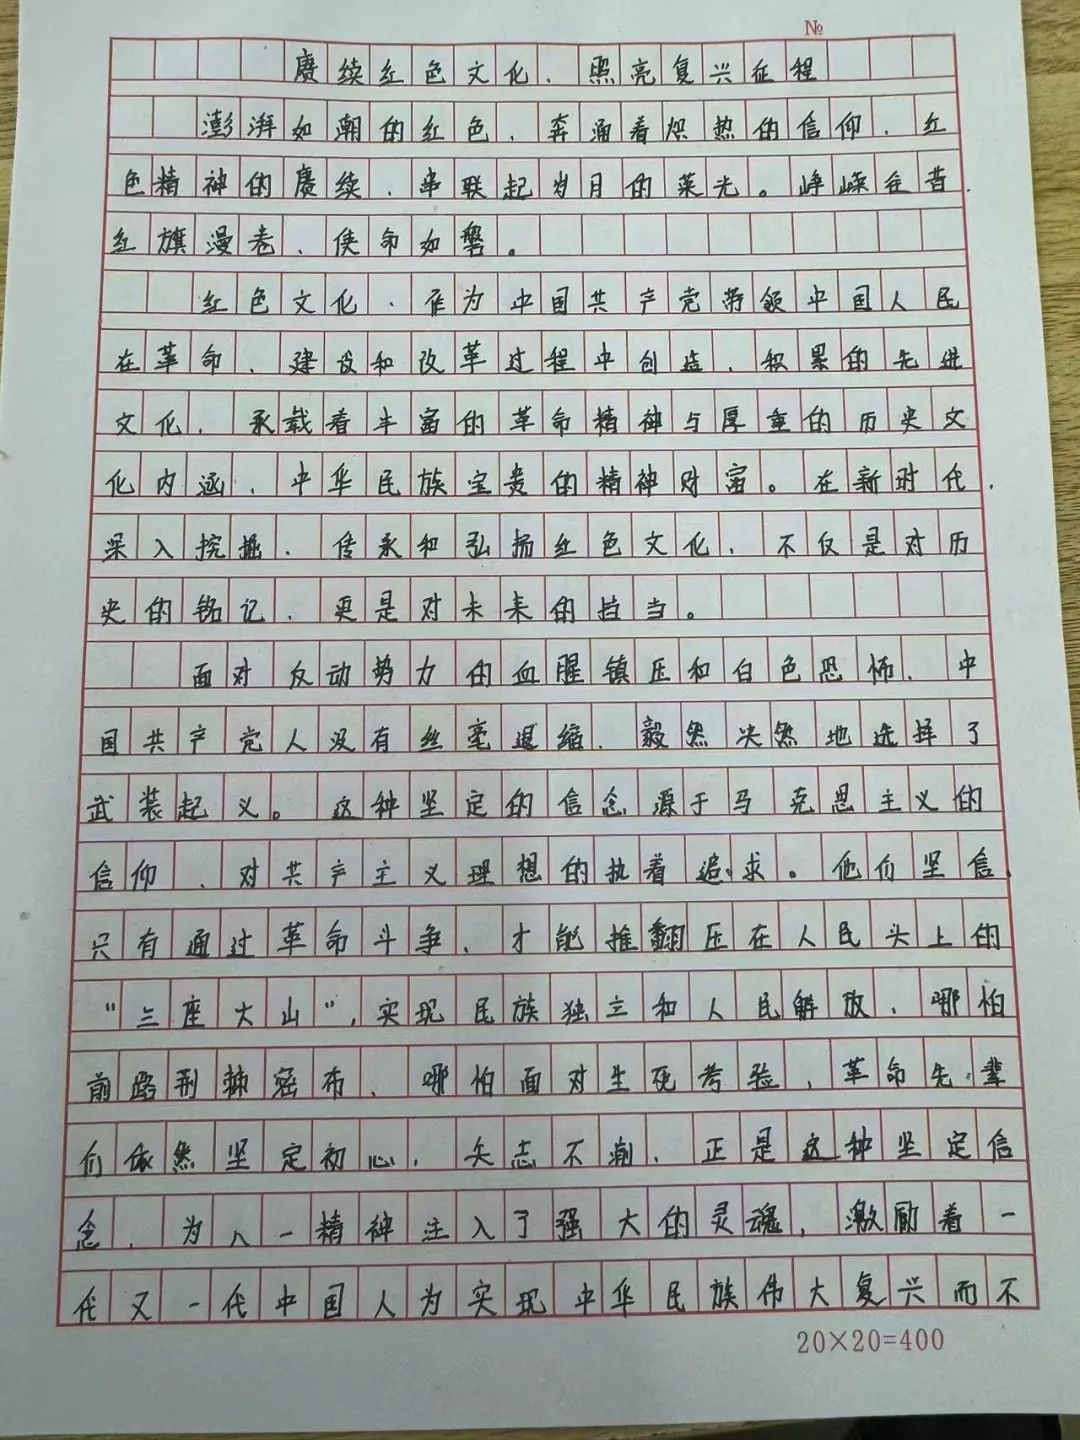 №
赓续红色文化，照亮复兴征程
澎湃如潮的红色，奔涌着炽热的信仰，红
色精神的赓续，串联起岁月的荣光。峥嵘往昔，
红旗漫卷，使命如磐。
红色文化，作为中国共产党带领中国人民
在革命、建设和改革过程中创造、积累的先进
文化，承载着丰富的革命精神与厚重的历史文
化内涵，中华民族宝贵的精神财富。在新时代，
深入挖掘、传承和弘扬红色文化，不仅是对历
史的铭记，更是对未来的担当。
面对反动势力的血腥镇压和白色恐怖，中
国共产党人没有丝毫退缩，毅然决然地选择了
武装起义。这种坚定的信念源于马克思主义的
信仰，对共产主义理想的执着追求。他们坚信，
只有通过革命斗争，才能推翻压在人民头上的
“三座大山”，实现民族独立和人民解放，哪怕
前路荆棘密布，哪怕面对生死考验，革命先辈
们依然坚定初心，矢志不渝，正是这种坚定信
念，为八一精神注入了强大的灵魂，激励着一
代又一代中国人为实现中华民族伟大复兴而不
20×20=400